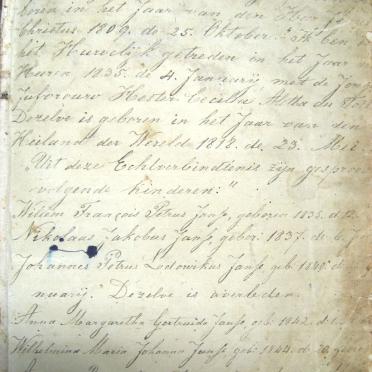 boren in het Jaar van den
Christus 1809. de 25. Oktober. Ik ben
het Huwelijk getreden in het Jaar
Heeren 1835. de 4. Januarij, met de
Jufvrouw Hester Cecilia Aletta du
Dezelve is geboren in het Jaar van den
Heiland der Wereld 1818. de 23. Mei
"Uit deze Echtverbindtenis zijn
volgende kinderen:"
Willem François Petrus Janse, geboren 1835. d. 12.
Nikolaas Jakobus Janse, gebor: 1837. de 6. J
Johannes Petrus Lodowikus Janse geb. 1840. d
nuarij. Dezelve is overleden.
Anna Margaretha Gertruida Janse, geb. 1842. d.
Wilhelmina Maria Johanna Janse, geb. 1844. de 20.